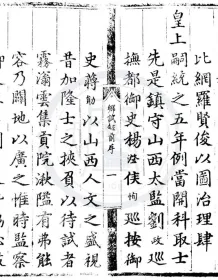 比網羅賢俊以圖治理肆
皇上嗣統之五年例當開科取士
先是鎮守山西太監劉政巡
撫都御史楊 巡按御
鄉試錄前序 一
史蔣 以山西人文之盛視
昔加 士之挾 以待試者
霧滃雲集貢院湫隘有弗能
容乃闢地以廣之惟時監察